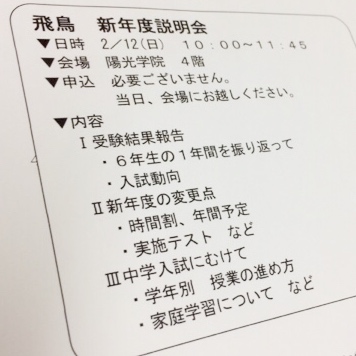 飛鳥　新年度説明会
▼日時　2／12(日)　10：00〜11：45
▼会場　陽光学院　4階
▼申込　必要ございません。
当日、会場にお越しください。
▼内容
Ⅰ受験結果報告
・6年生の1年間を振り返って
・入試動向
Ⅱ新年度の変更点
・時間割、年間予定
・実施テスト　など
Ⅲ中学入試にむけて
・学年別　授業の進め方
・家庭学習について　など